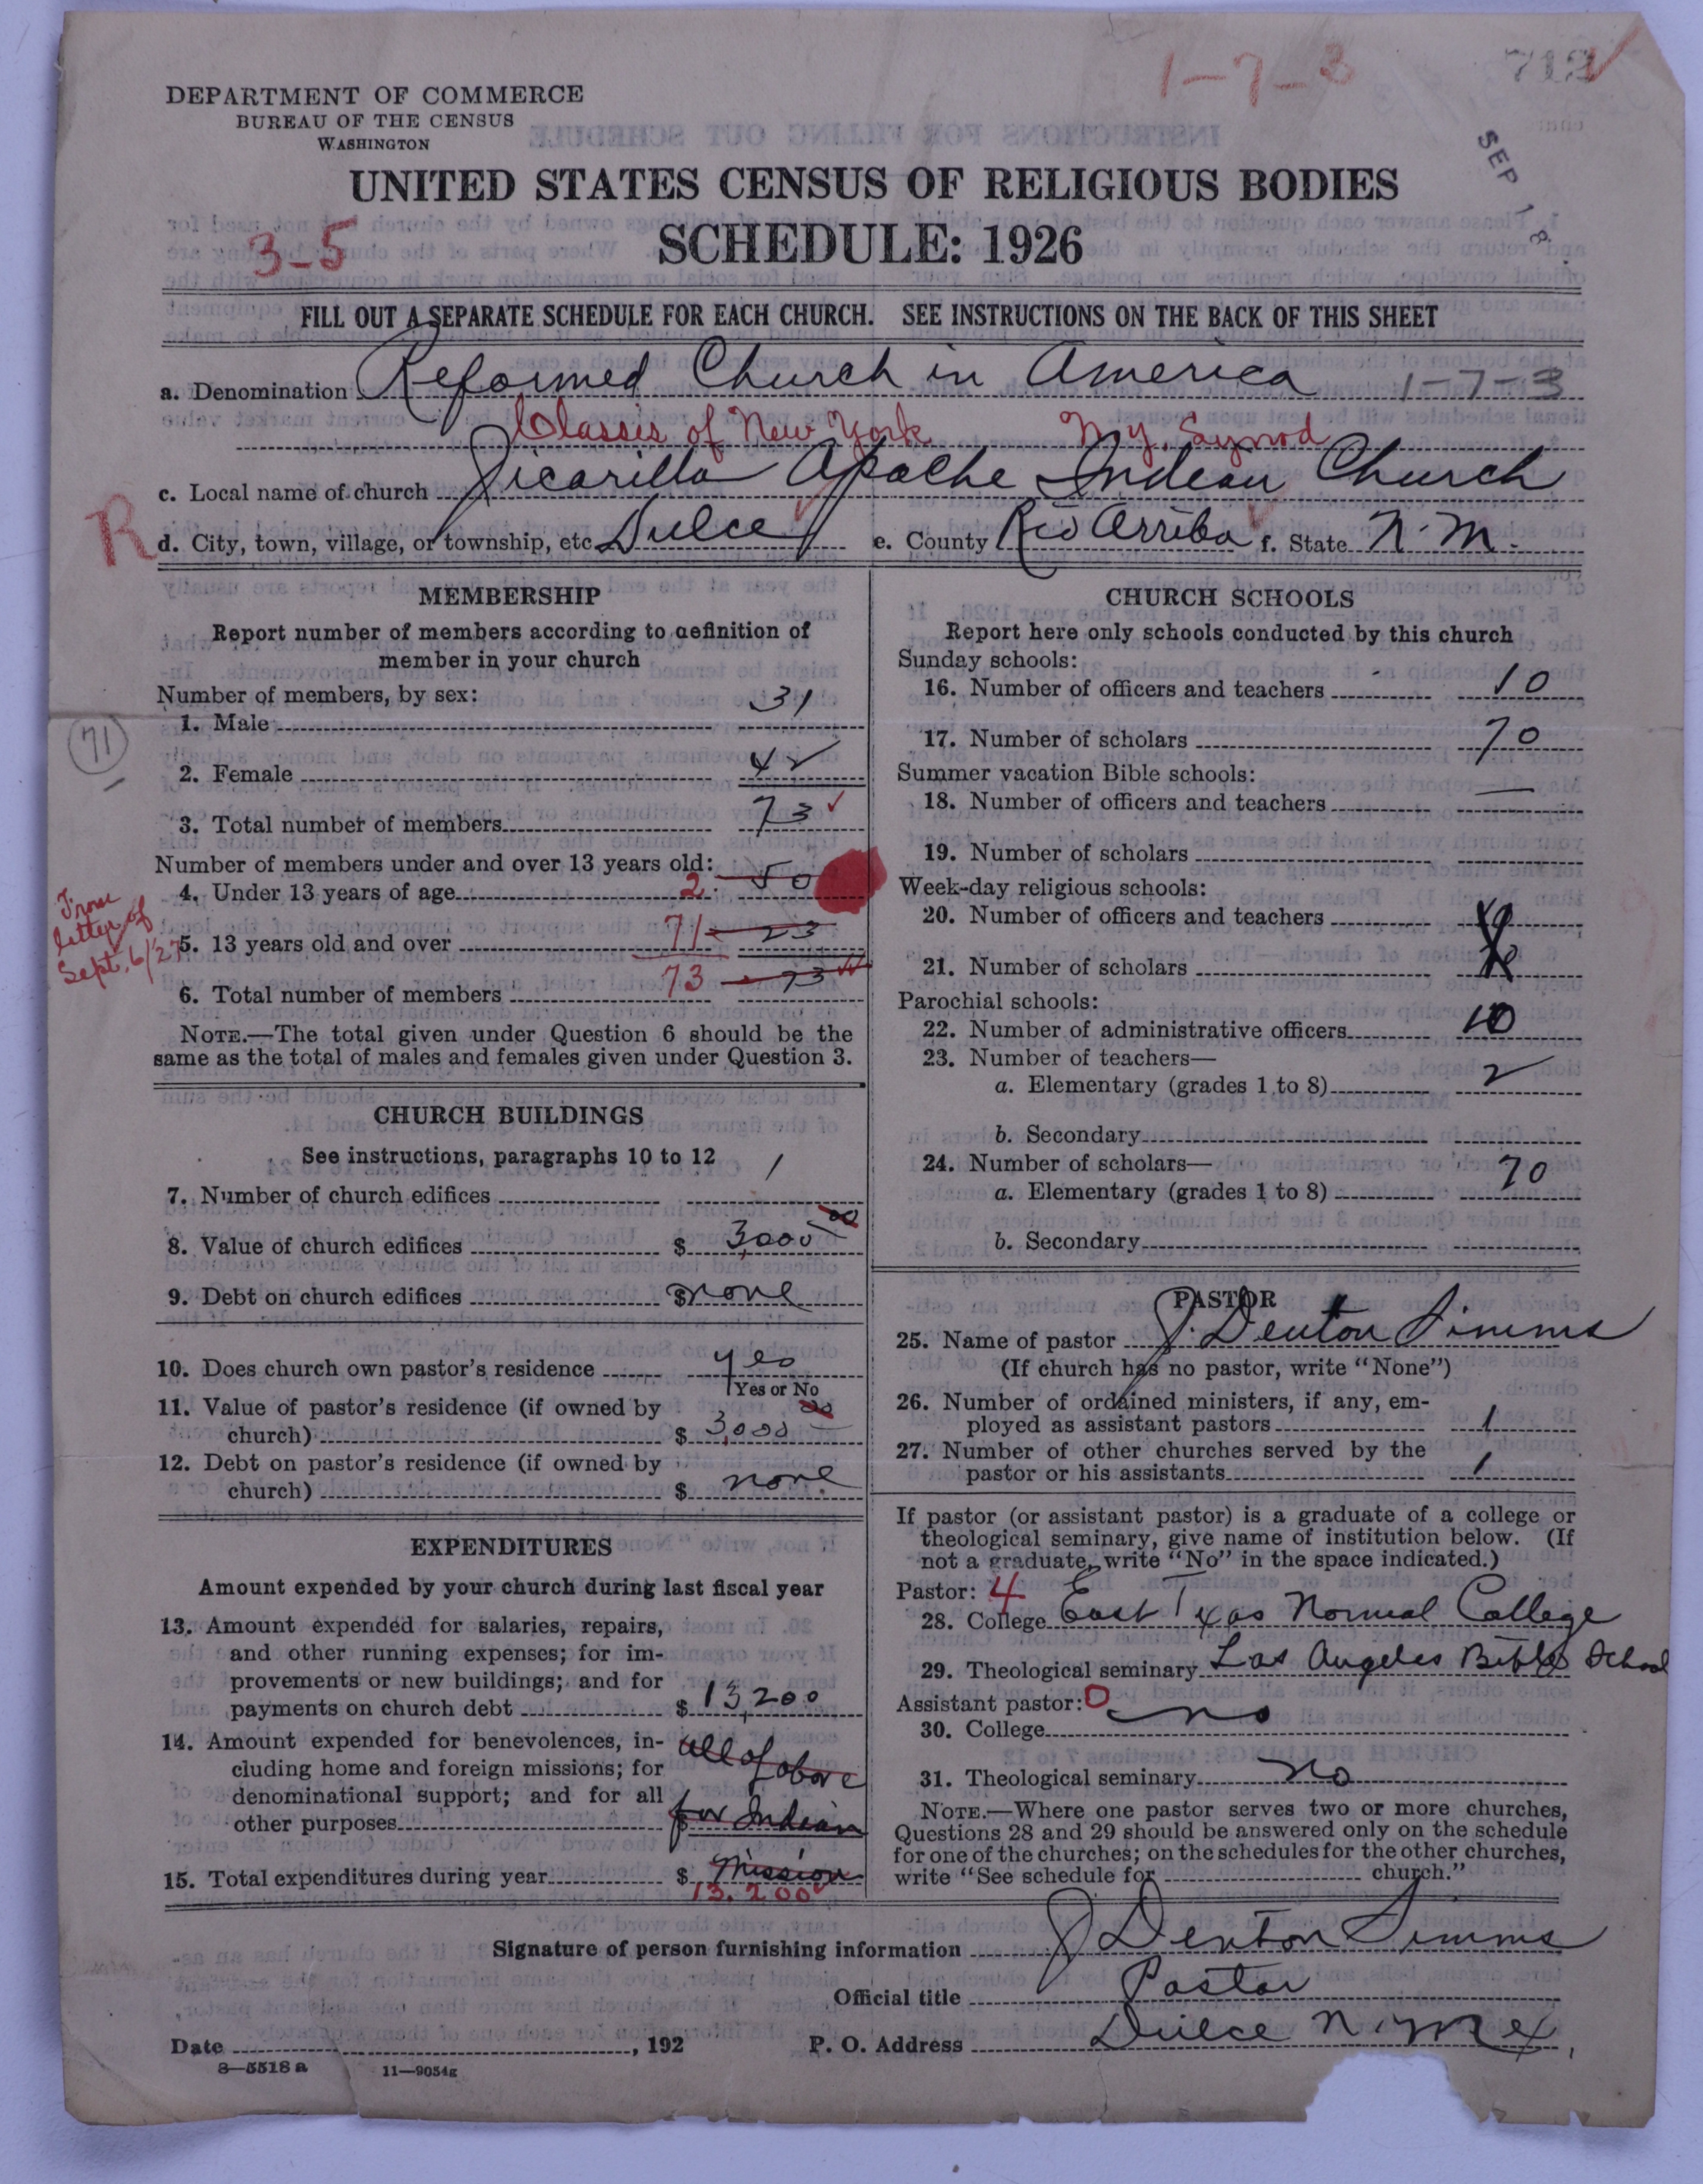 1-7-3
712
DEPARTMENT OF COMMERCE
BUREAU OF THE CENSUS
WASHINGTON
SEP 18
UNITED STATES CENSUS OF RELIGIOUS BODIES
3-5
SCHEDULE: 1926
FILL OUT A SEPARATE SCHEDULE FOR EACH CHURCH. SEE INSTRUCTIONS ON THE BACK OF THIS SHEET
a. Denomination Reformed Church in America 1-7-3
Classis of New York N.Y. Synod
c. Local name of church Jicarilla Apache Indian Church
R
d. City, town, village, or township, etc Dulce e. County Rio Arriba f. State N.M.
MEMBERSHIP
Report number of members according to definition of
member in your church
Number of members, by sex:
1. Male 31
71
2. Female 42
3. Total number of members 73
Number of members under and over 13 years old:
4. Under 13 years of age 2 50
From letter of Sept. 6/27
5. 13 years old and over 71 23
6. Total number of members 73 73
NOTE.—The total given under Question 6 should be the
same as the total of males and females given under Question 3.
CHURCH BUILDINGS
See instructions, paragraphs 10 to 12
7. Number of church edifices 1
8. Value of church edifices $ 3,000 00
9. Debt on church edifices $ none
10. Does church own pastor's residence yes
Yes or No
11. Value of pastor's residence (if owned by
church) $ 3,000 00
12. Debt on pastor's residence (if owned by
church) $ none
EXPENDITURES
Amount expended by your church during last fiscal year
13. Amount expended for salaries, repairs,
and other running expenses; for im-
provements or new buildings; and for
payments on church debt $ 13,200
14. Amount expended for benevolences, in-
cluding home and foreign missions; for
denominational support; and for all
other purposes
all of above
for Indian
15. Total expenditures during year $ Mission
13,200
CHURCH SCHOOLS
Report here only schools conducted by this church
Sunday schools:
16. Number of officers and teachers 10
17. Number of scholars 70
Summer vacation Bible schools:
18. Number of officers and teachers —
19. Number of scholars
Week-day religious schools:
20. Number of officers and teachers
21. Number of scholars
Parochial schools:
22. Number of administrative officers 10
23. Number of teachers—
a. Elementary (grades 1 to 8) 2
b. Secondary
24. Number of scholars—
a. Elementary (grades 1 to 8) 70
b. Secondary
PASTOR
25. Name of pastor J. Denton Simms
(If church has no pastor, write "None")
26. Number of ordained ministers, if any, em-
ployed as assistant pastors 1
27. Number of other churches served by the
pastor or his assistants 1
If pastor (or assistant pastor) is a graduate of a college or
theological seminary, give name of institution below. (If
not a graduate, write "No" in the space indicated.)
Pastor: 4
28. College East Texas Normal College
29. Theological seminary Los Angeles Bible School
Assistant pastor: 0
30. College no
31. Theological seminary no
NOTE.—Where one pastor serves two or more churches,
Questions 28 and 29 should be answered only on the schedule
for one of the churches; on the schedules for the other churches,
write "See schedule for church."
Signature of person furnishing information J Denton Simms
Official title Pastor
Date , 192 P. O. Address Dulce N. Mex.
8—5518 a 11—9054g